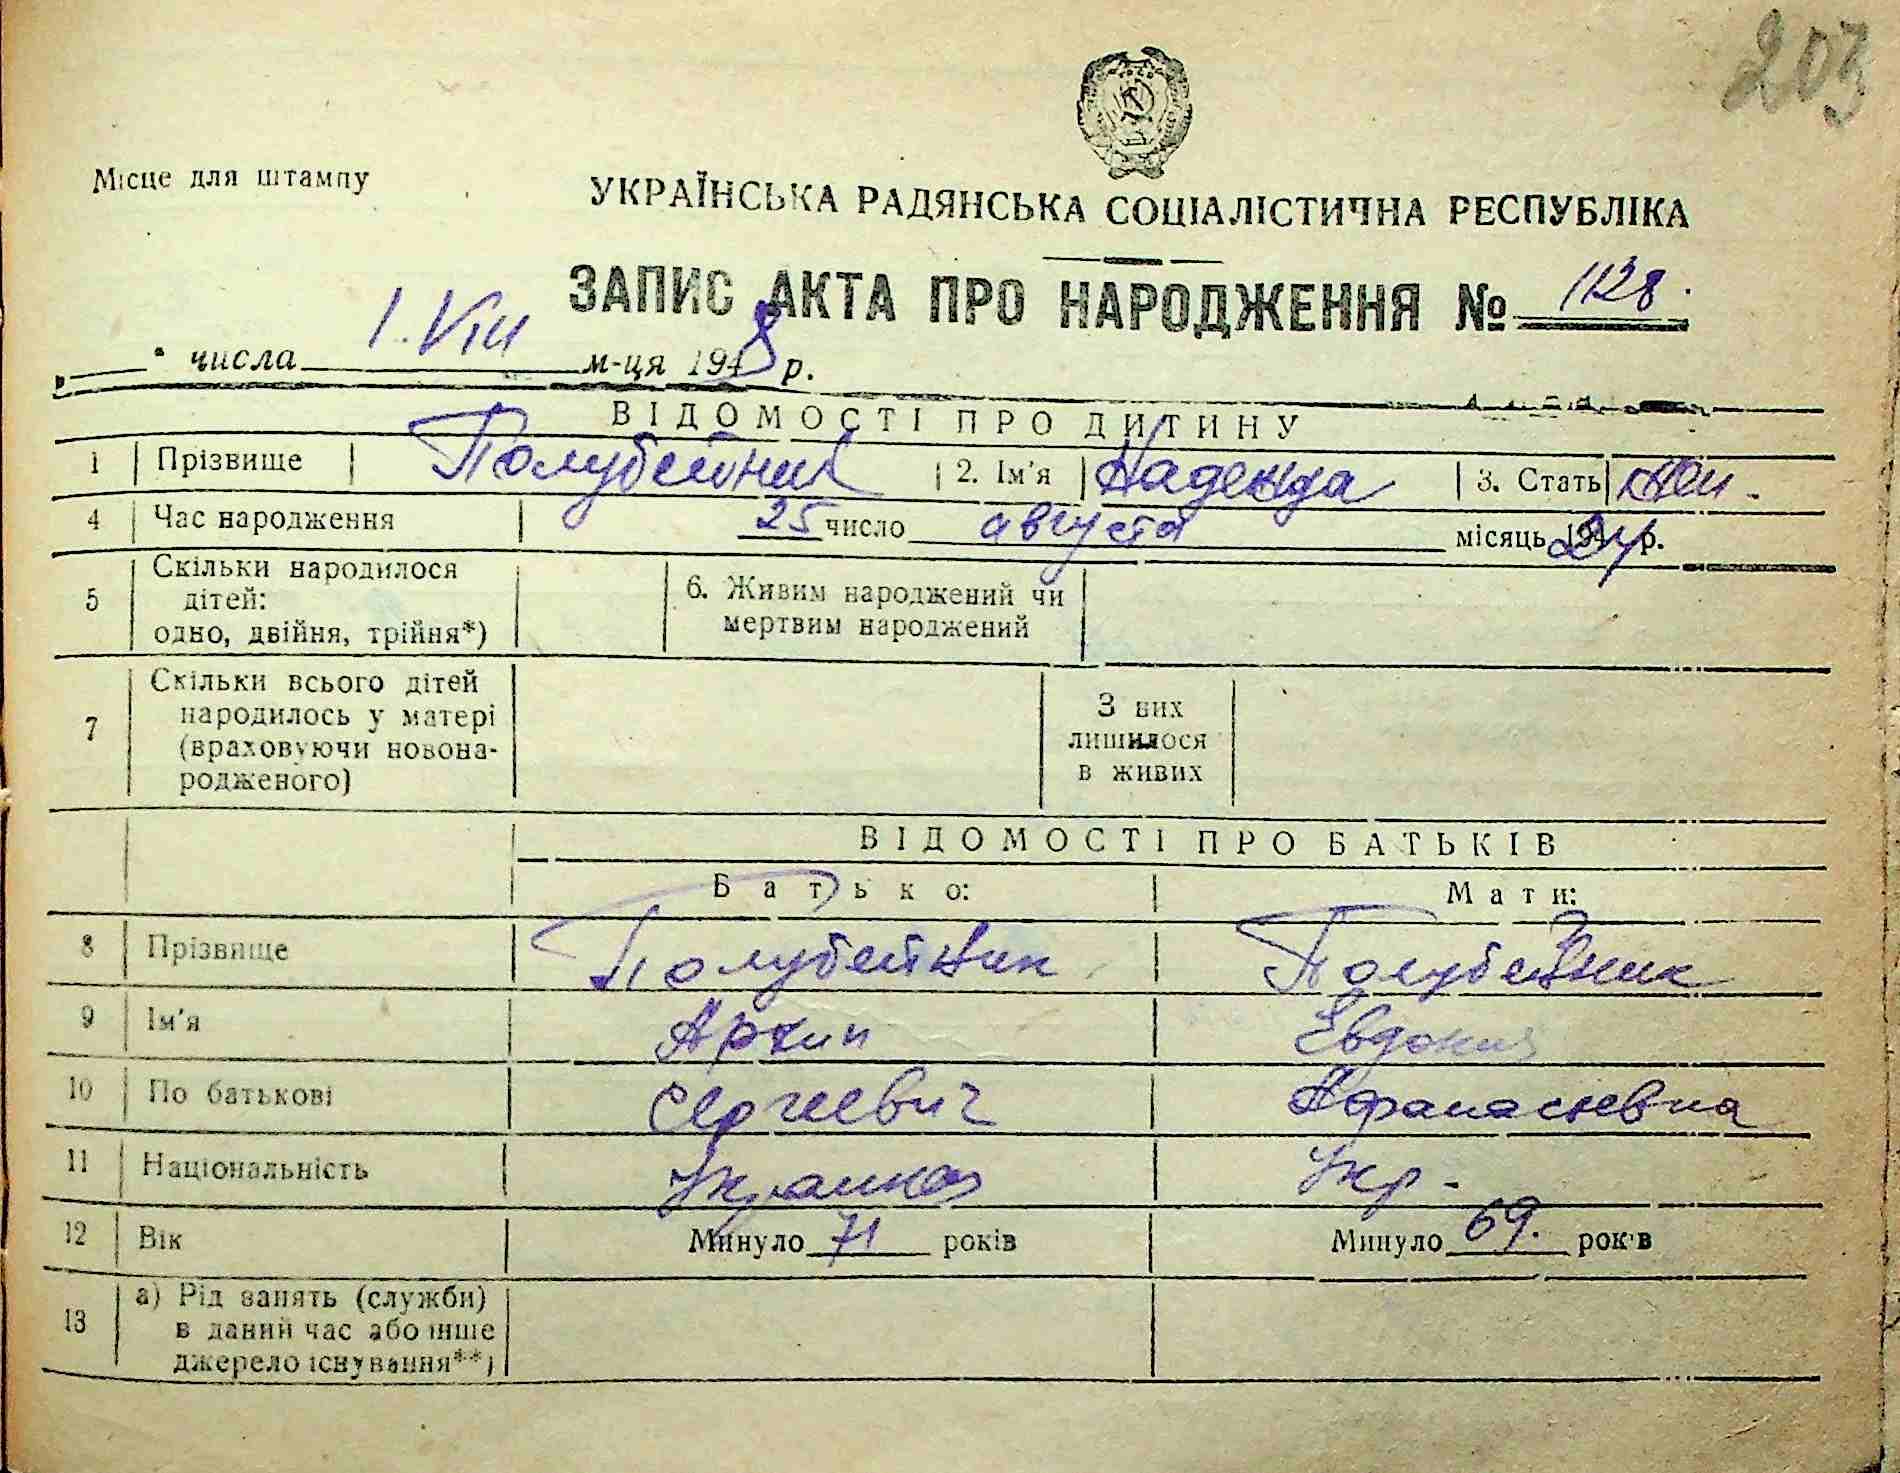 203
Місце для штампу
УКРАЇНСЬКА РАДЯНСЬКА СОЦІАЛІСТИЧНА РЕСПУБЛІКА
ЗАПИС АКТА ПРО НАРОДЖЕННЯ № 1128.
числа 1.VIII м-ця 1948 р.
ВІДОМОСТІ ПРО ДИТИНУ
1 Прізвище Полубейник 2. Ім'я Надежда 3. Стать жен.
4 Час народження 25 число августа місяць 1924 р.
5 Скільки народилося дітей: одно, двійня, трійня*) 6. Живим народжений чи мертвим народжений
7 Скільки всього дітей народилось у матері (враховуючи новона-родженого) З них лишилося в живих
ВІДОМОСТІ ПРО БАТЬКІВ
Батько: Мати:
8 Прізвище Полубейник Полубейник
9 Ім'я Архип Евдокия
10 По батькові Сергеевич Афанасьевна
11 Національність Укр.
12 Вік Минуло 71 років Минуло 69. років
13 а) Рід занять (служби) в даний час або інше джерело існування**)